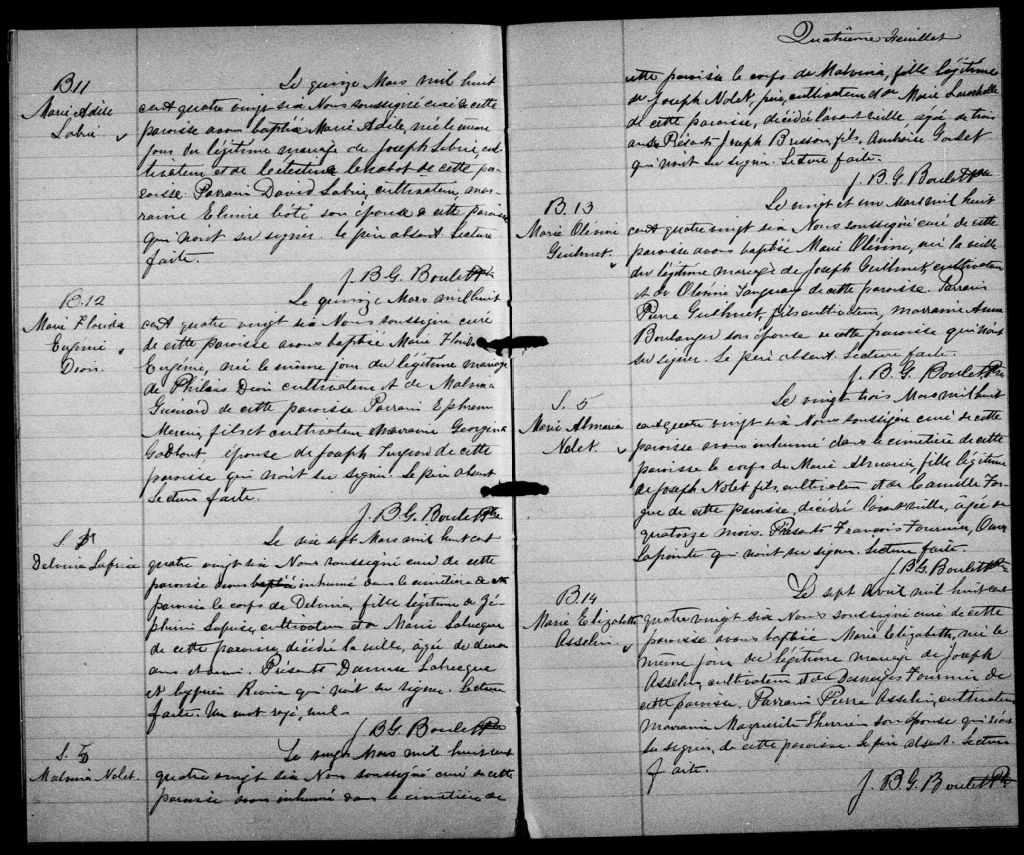 B11
Marie Adèle
Labrie
Le quinze Mars mil huit
cent quatre vingt six Nous soussigné curé de cette
paroisse avons baptisé Marie Adèle, née le même
jour du légitime mariage de Joseph Labrie, cul-
tivateur et de Célestine de cette pa-
roisse. Parrain David Labrie, cultivateur, mar-
raine Elmire Côté son épouse de cette paroisse
qui n'ont su signer. Le père absent. Lecture
faite.
J. B. G. Boulet Ptre
B.12
Marie Florida
Eugénie
Dion.
Le quinze Mars mil huit
cent quatre vingt six Nous soussigné curé
de cette paroisse avons baptisé Marie Florida
Eugénie, née le même jour du légitime mariage
de Philéas Dion cultivateur et de Malvina
Guénard de cette paroisse. Parrain Ephrem
Mercier, fils et cultivateur Marraine Georgina
Godbout épouse de Joseph Turgeon de cette
paroisse qui n'ont su signer. Le père absent
Lecture faite.
J. B. G. Boulet Ptre
S.
Delvina Laprise
Le dix sept Mars mil huit cent
quatre vingt six Nous soussigné curé de cette
paroisse avons baptisé inhumé dans le cimetière de cette
paroisse le corps de Delvina, fille légitime de Zé-
phirin Laprise, cultivateur et de Marie Labrecque
de cette paroisse, décédée la veille, agée de deux
ans et demi. Présents Damase Labrecque
et Cyprien qui n'ont su signer. Lecture
faite. Un mot rayé, nul.
J. B. G. Boulet Ptre
S.
Malvina Nolet.
Le vingt Mars mil huit cent
quatre vingt six Nous soussigné curé de cette
paroisse avons inhumé dans le cimetière de
Quatrième feuillet
cette paroisse le corps de Malvina, fille légitime
de Joseph Nolet, père, cultivateur et de Marie Larochelle
de cette paroisse, décédée l'avant veille, agée de trois
ans. Présents Joseph Brisson, fils, Ambroise
qui n'ont su signer. Lecture faite.
J. B. G. Boulet Ptre
B.13
Marie Olévine
Guilmet.
Le vingt et un Mars mil huit
cent quatre vingt six Nous soussigné curé de cette
paroisse avons baptisé Marie Olévine, née la veille
du légitime mariage de Joseph Guilmet cultivateur
et de Olévine Tanguay de cette paroisse. Parrain
Pierre Guilmet, fils cultivateur, marraine Anna
Boulanger son épouse de cette paroisse qui n'ont
su signer. Le père absent. Lecture faite.
J. B. G. Boulet Ptre
S. 5
Marie Almaria
Nolet.
Le vingt trois Mars mil huit
cent quatre vingt six Nous soussigné curé de cette
paroisse avons inhumé dans le cimetière de cette
paroisse le corps de Marie Almaria, fille légitime
de Joseph Nolet fils, cultivateur et de Camille
de cette paroisse, décédée l'avant veille, agée de
quatorze mois. Présents François Fournier,
Lapointe qui n'ont su signer. Lecture faite.
J. B. G. Boulet Ptre
B.14
Marie Elizabeth
Asselin.
Le sept Avril mil huit cent
quatre vingt six Nous soussigné curé de cette
paroisse avons baptisé Marie Elizabeth, née le
même jour du légitime mariage de Joseph
Asselin, cultivateur et de Desneiges Fournier de
cette paroisse. Parrain Pierre Asselin, cultivateur
marraine Marguerite Therrien son épouse qui n'ont
su signer, de cette paroisse. Le père absent. Lecture
faite.
J. B. G. Boulet Ptre